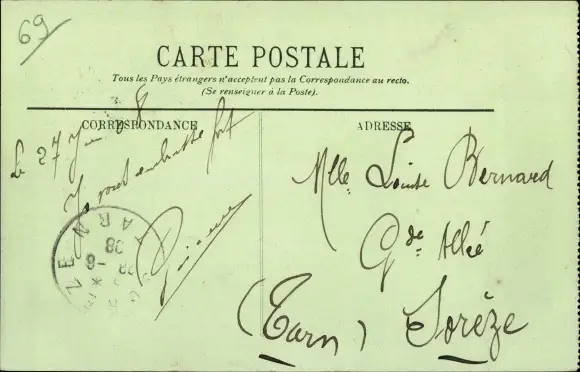 69
CARTE POSTALE
Tous les Pays étrangers n'acceptent pas la Correspondance au recto.
(Se renseigner à la Poste).
CORRESPONDANCE
Le 27 Juin 08
ADRESSE
Mlle Louise Bernard
Gde Allée
(Tarn) Sorèze
TARN